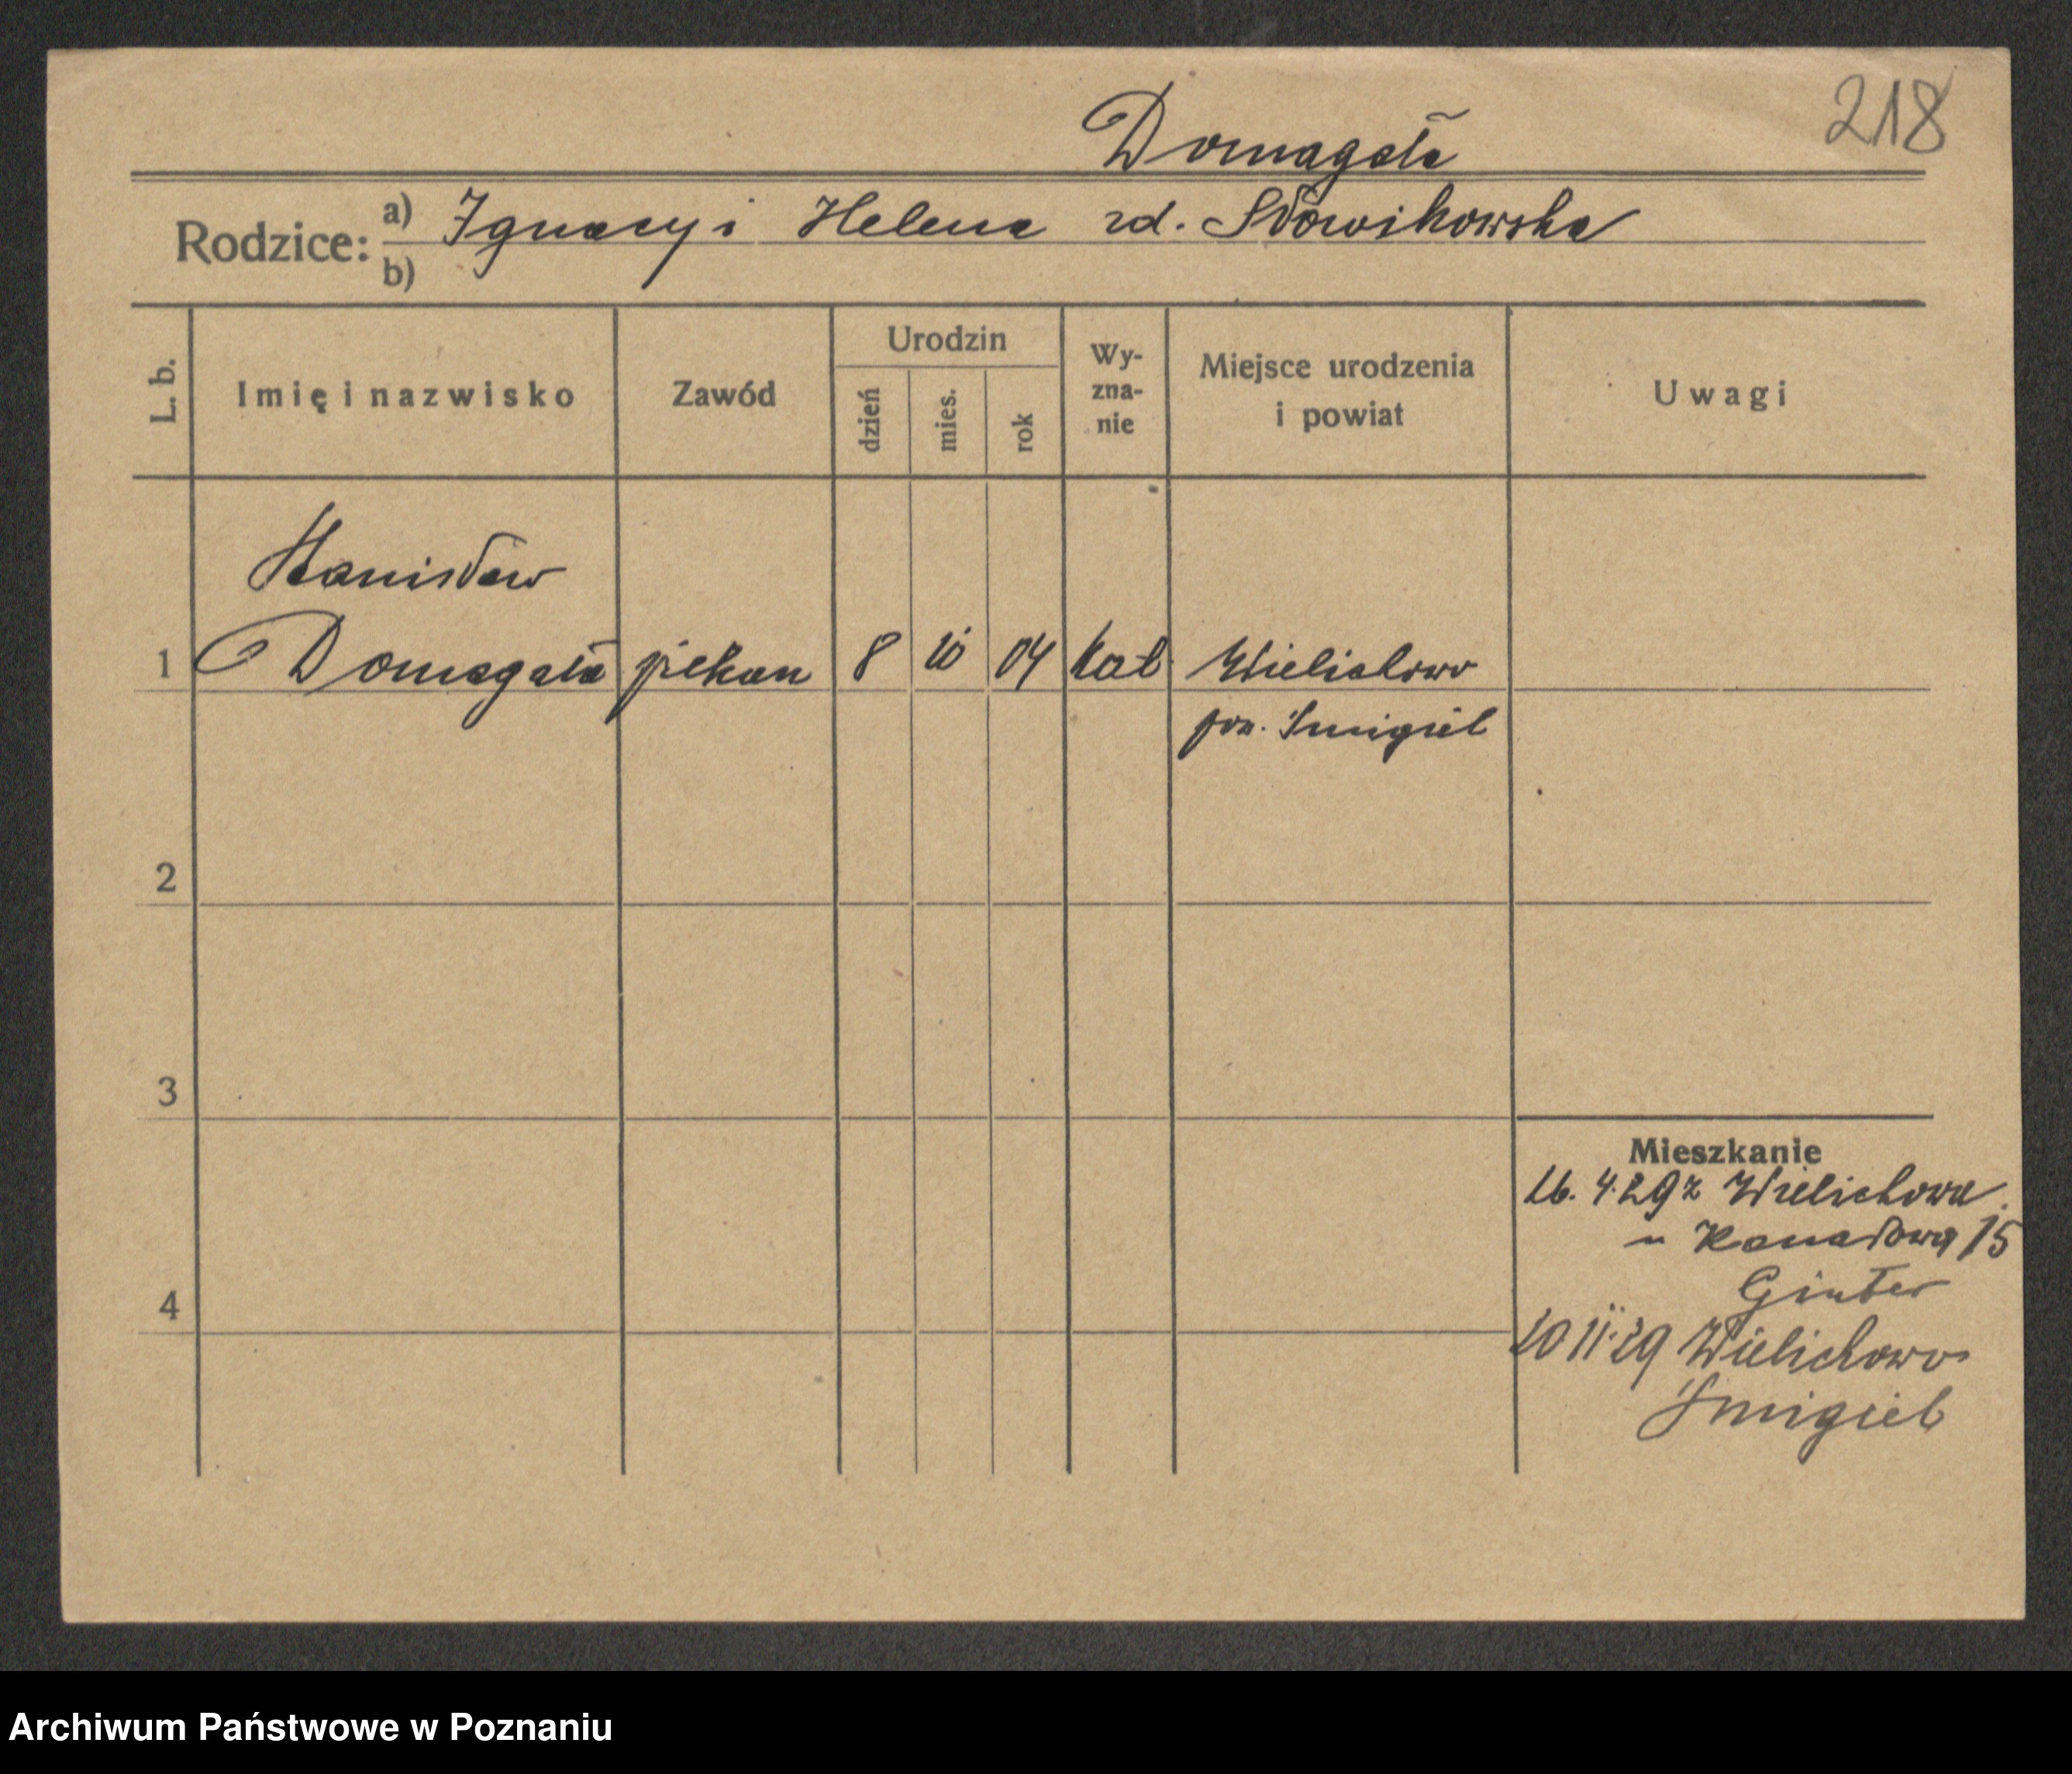 218
Domagała
Rodzice: a) Ignacy i Helena rd. Słowikowska
b)
L. b.
Imię i nazwisko
Zawód
Urodzin
dzień
mies.
rok
Wy-
zna-
nie
Miejsce urodzenia
i powiat
Uwagi
Stanisław
1 Domagała piekarz 8 10 04 kat Wielichowo
pow. Śmigiel
2
3
4
Mieszkanie
26. 4. 29 z Wielichowa
15
Ginter
20 11 29 Wielichowo
Śmigiel
Archiwum Państwowe w Poznaniu